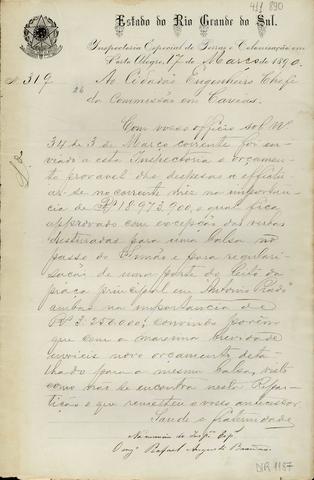 411 890
Estado do Rio Grande do Sul.
Inspectoria Especial de Terras e Colonisação em
Porto Alegre, 17 de Março de 1890.
Nº 319
Ao Cidadão Engenheiro Chefe
26
da Commissão em Caxias.
Com vosso officio sob Nº
34 de 3 de Março corrente foi en-
viado a esta Inspectoria o orçamento
provavel das despesas a effectu-
ar-se no corrente mez na importan-
cia de Rs 18.973.900, o qual fica
approvado com excepção das verbas
destinadas para uma balsa no
passo do Simão e para regulari-
sacão de uma parte do leito da
praça principal em "Antonio Prado"
ambas na importancia de
Rs 3.250.000; convindo porém
que com a maxima brevidade
envieis novo orçamento deta-
lhado para a mesma balsa, visto
como não se encontra nesta Repar-
tição o que remetteu o vosso antecessor.
Saude e fraternidade
Na ausencia do
O engº Rafael Augusto
NR 1187